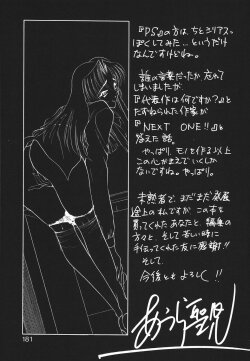 『PS』の方は、ちとシリアスっ
ぽくしてみた…というだけ
なんですけどね。
誰の言葉だったか忘れて
しまいましたが
『代表作は何ですか?』と
たずねられた作家が
『NEXT ONE!!』と
答えた話。
やっぱり モノを作る以上
この心がまえでいくしか
ないですね。やっぱり。
未熟者で、まだまだ発展
途上の私ですが この本を
買ってくれたあなたと 編集の
方々と、そして苦しい時に
手伝ってくれた友に感謝!!
そして
今後ともよろしく!!
あうら聖児
181